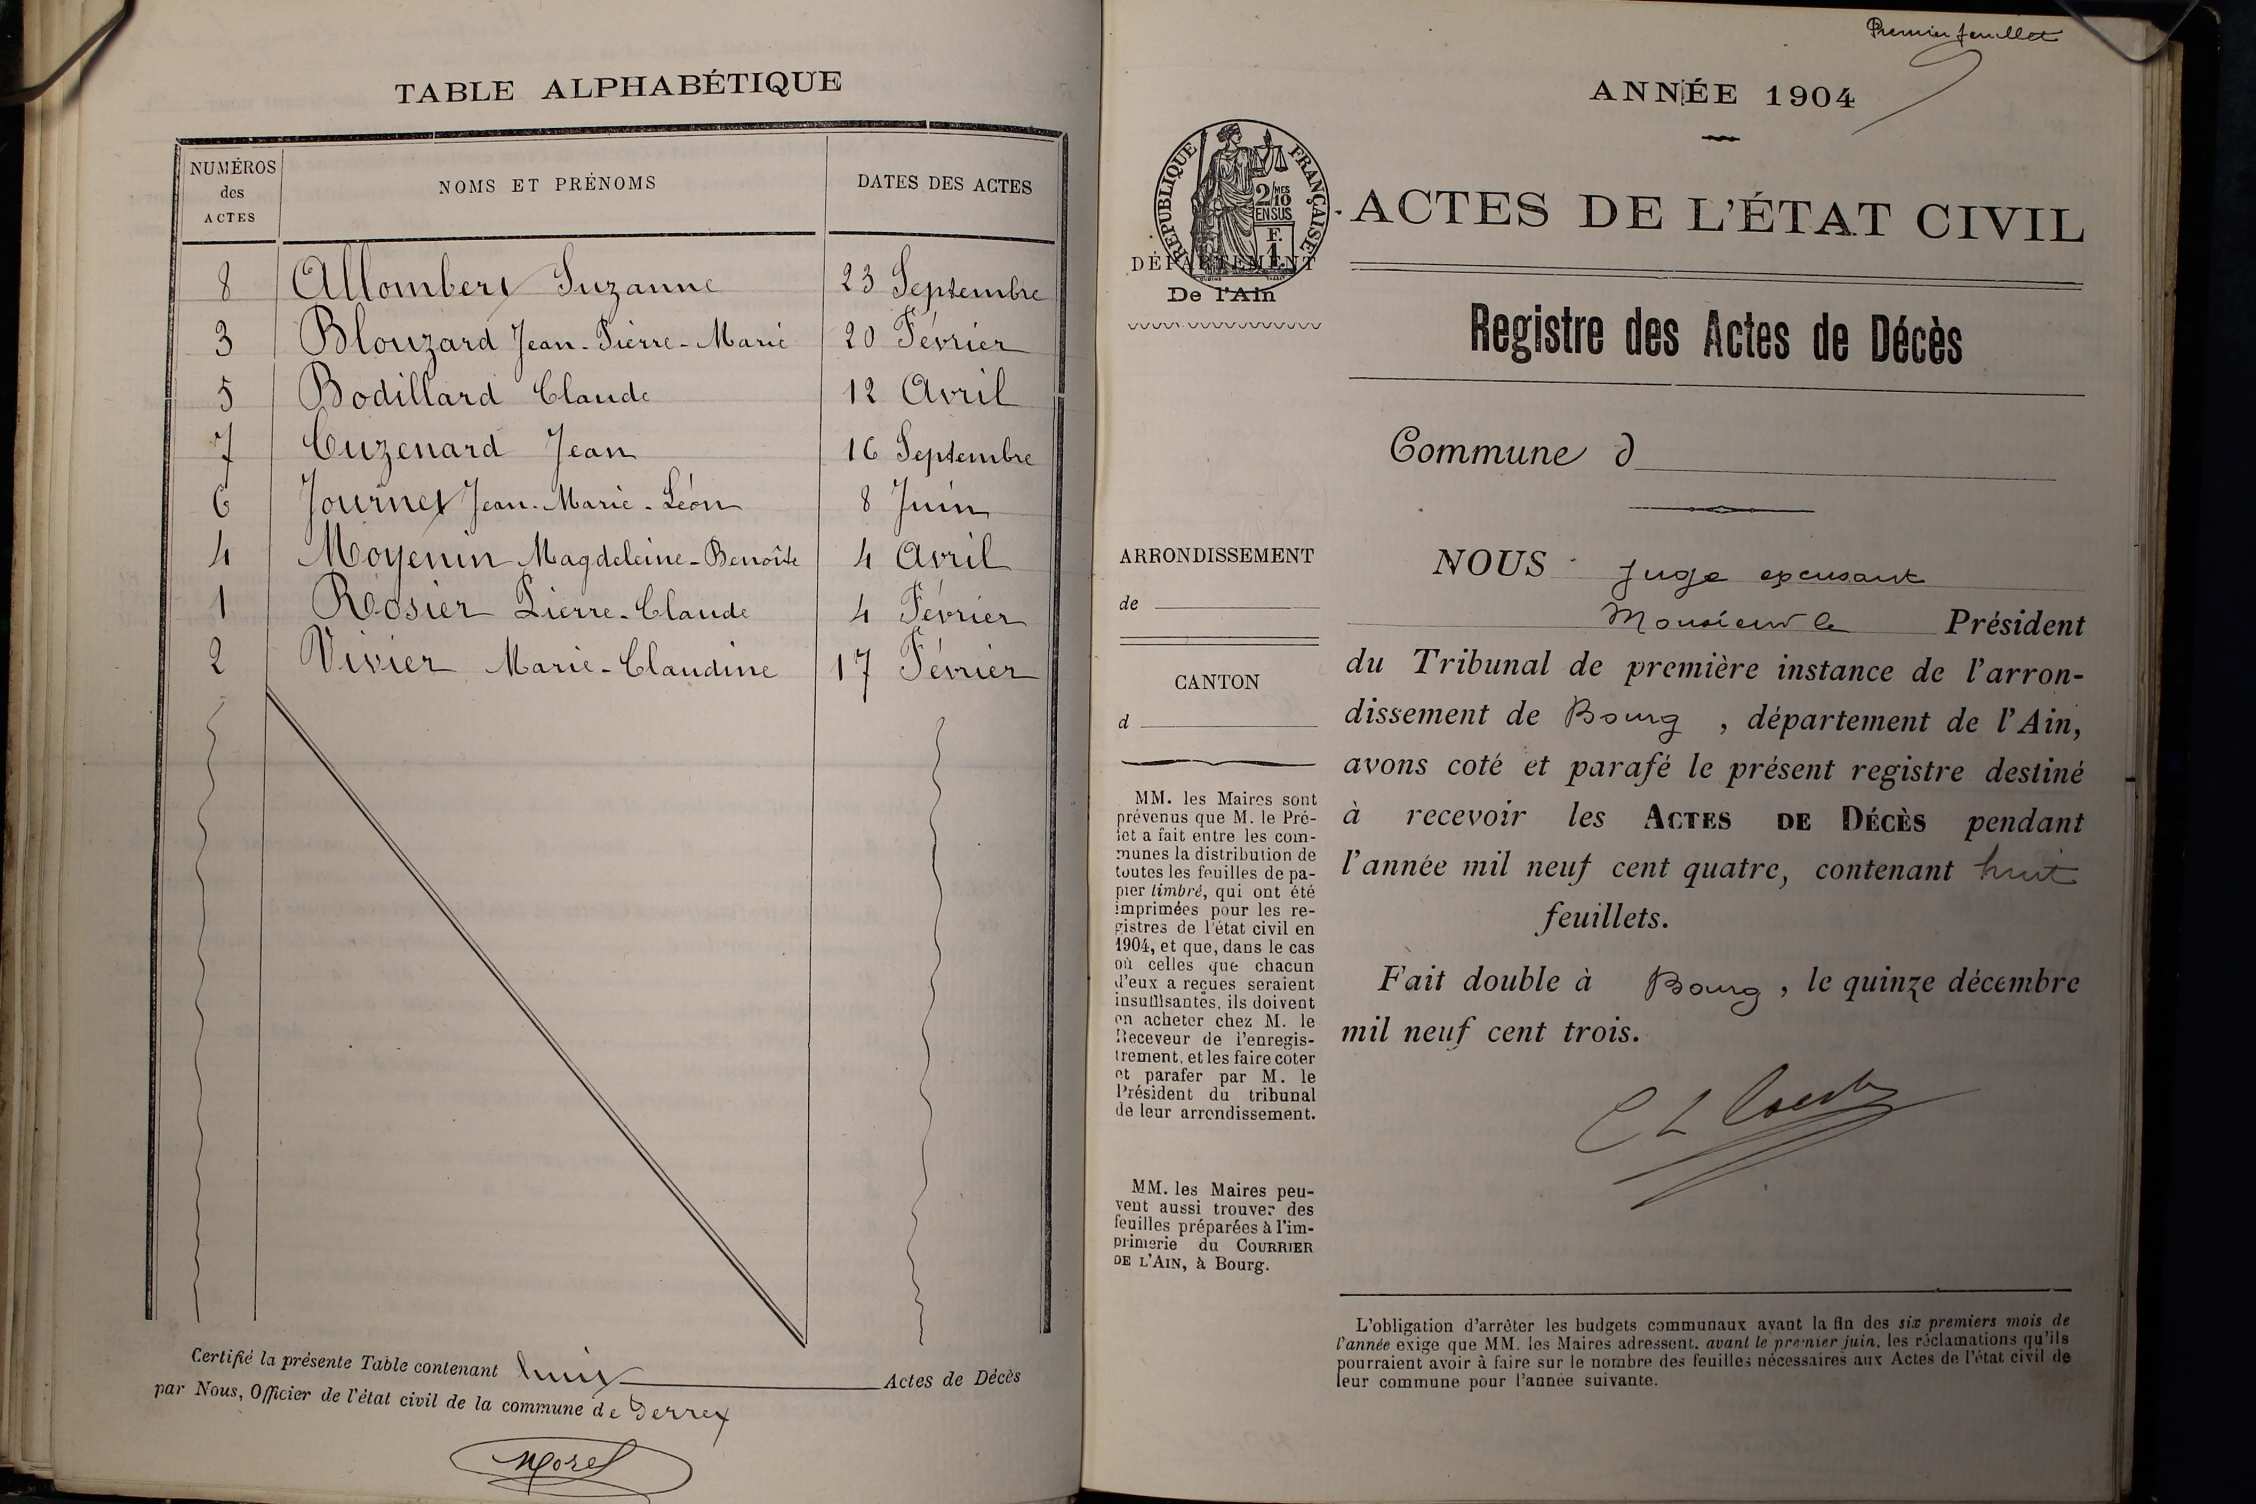 TABLE ALPHABÉTIQUE
NUMÉROS des ACTES
NOMS ET PRÉNOMS
DATES DES ACTES
8 Allombert Suzanne 23 Septembre
3 Blouzard Jean-Pierre-Marie 20 Février
5 Bodillard Claude 12 Avril
7 Cuzenard Jean 16 Septembre
6 Journet Jean-Marie-Léon 8 Juin
4 Moyenin Magdeleine-Benoîte 4 Avril
1 Rosier Pierre-Claude 4 Février
2 Vivier Marie-Claudine 17 Février
Certifié la présente Table contenant huit Actes de Décès
par Nous, Officier de l'état civil de la commune de Serrex
Morel
Premier feuillet
ANNÉE 1904
RÉPUBLIQUE FRANÇAISE
2/10 MES
EN SUS
F.
1.
DÉPARTEMENT
De l'Ain
ACTES DE L'ÉTAT CIVIL
Registre des Actes de Décès
Commune d
ARRONDISSEMENT
de
CANTON
d
MM. les Maires sont
prévenus que M. le Pré-
fet a fait entre les com-
munes la distribution de
toutes les feuilles de pa-
pier timbré, qui ont été
imprimées pour les re-
gistres de l'état civil en
1904, et que, dans le cas
où celles que chacun
d'eux a reçues seraient
insuffisantes, ils doivent
en acheter chez M. le
Receveur de l'enregis-
trement, et les faire coter
et parafer par M. le
Président du tribunal
de leur arrondissement.
MM. les Maires peu-
vent aussi trouver des
feuilles préparées à l'im-
primerie du COURRIER
DE L'AIN, à Bourg.
NOUS Juge excusant
Monsieur le Président
du Tribunal de première instance de l'arron-
dissement de Bourg, département de l'Ain,
avons coté et parafé le présent registre destiné
à recevoir les ACTES DE DÉCÈS pendant
l'année mil neuf cent quatre, contenant huit
feuillets.
Fait double à Bourg, le quinze décembre
mil neuf cent trois.
L'obligation d'arrêter les budgets communaux avant la fin des six premiers mois de
l'année exige que MM. les Maires adressent, avant le premier juin, les réclamations qu'ils
pourraient avoir à faire sur le nombre des feuilles nécessaires aux Actes de l'état civil de
leur commune pour l'année suivante.